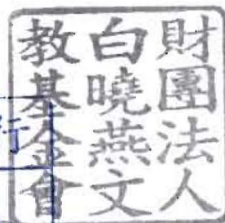 財團法人
白曉燕文
教基金會
行